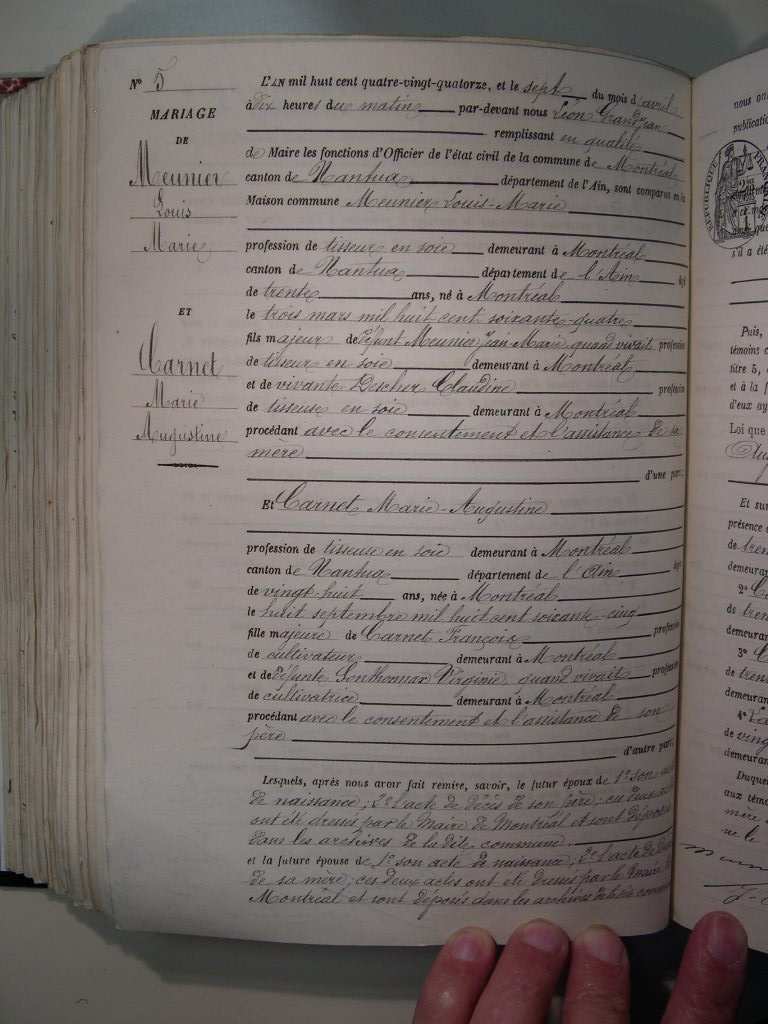 N° 5
MARIAGE
DE
Meunier
Louis
Marie
ET
Carnet
Marie
Augustine
L'AN mil huit cent quatre-vingt-quatorze, et le sept du mois d'avril
à dix heures du matin par-devant nous Léon Grandjean
remplissant en qualité
de Maire les fonctions d'Officier de l'état civil de la commune de Montréal
canton de Nantua département de l'Ain, sont comparus en la
Maison commune Meunier Louis-Marie
profession de tisseur en soie demeurant à Montréal
canton de Nantua département de l'Ain âgé
de trente ans, né à Montréal
le trois mars mil huit cent soixante-quatre
fils majeur de défunt Meunier Jean Marie quand vivait profession
de tisseur en soie demeurant à Montréal
et de vivante Descher Claudine profession
de tisseuse en soie demeurant à Montréal
procédant avec le consentement et l'assistance de sa
mère
d'une part.
Et Carnet Marie-Augustine
profession de tisseuse en soie demeurant à Montréal
canton de Nantua département de l'Ain âgé
de vingt huit ans, née à Montréal
le huit septembre mil huit cent soixante-cinq
fille majeure de Carnet François profession
de cultivateur demeurant à Montréal
et de défunte Virginie quand vivait profession
de cultivatrice demeurant à Montréal
procédant avec le consentement et l'assistance de son
père
d'autre part.
Lesquels, après nous avoir fait remise, savoir, le futur époux de 1° son acte
de naissance; 2° l'acte de décès de son père; ces deux actes
ont été dressés par le Maire de Montréal et sont déposés
dans les archives de la dite commune.
et la future épouse de 1° son acte de naissance; 2° l'acte de décès
de sa mère; ces deux actes ont été dressés par le Maire de
Montréal et sont déposés dans les archives de la dite commune
nous ont
publication
RÉPUBLIQUE FRANÇAISE
s'il a été
Puis,
témoins c
titre 5,
et à la f
d'eux ay
Loi que
Et sur
présence d
de tren
demeurant
2°
de tren
demeurant
3°
de tren
demeurant
4°
de vingt
demeurant
Duquel
aux témo
mère
ne le